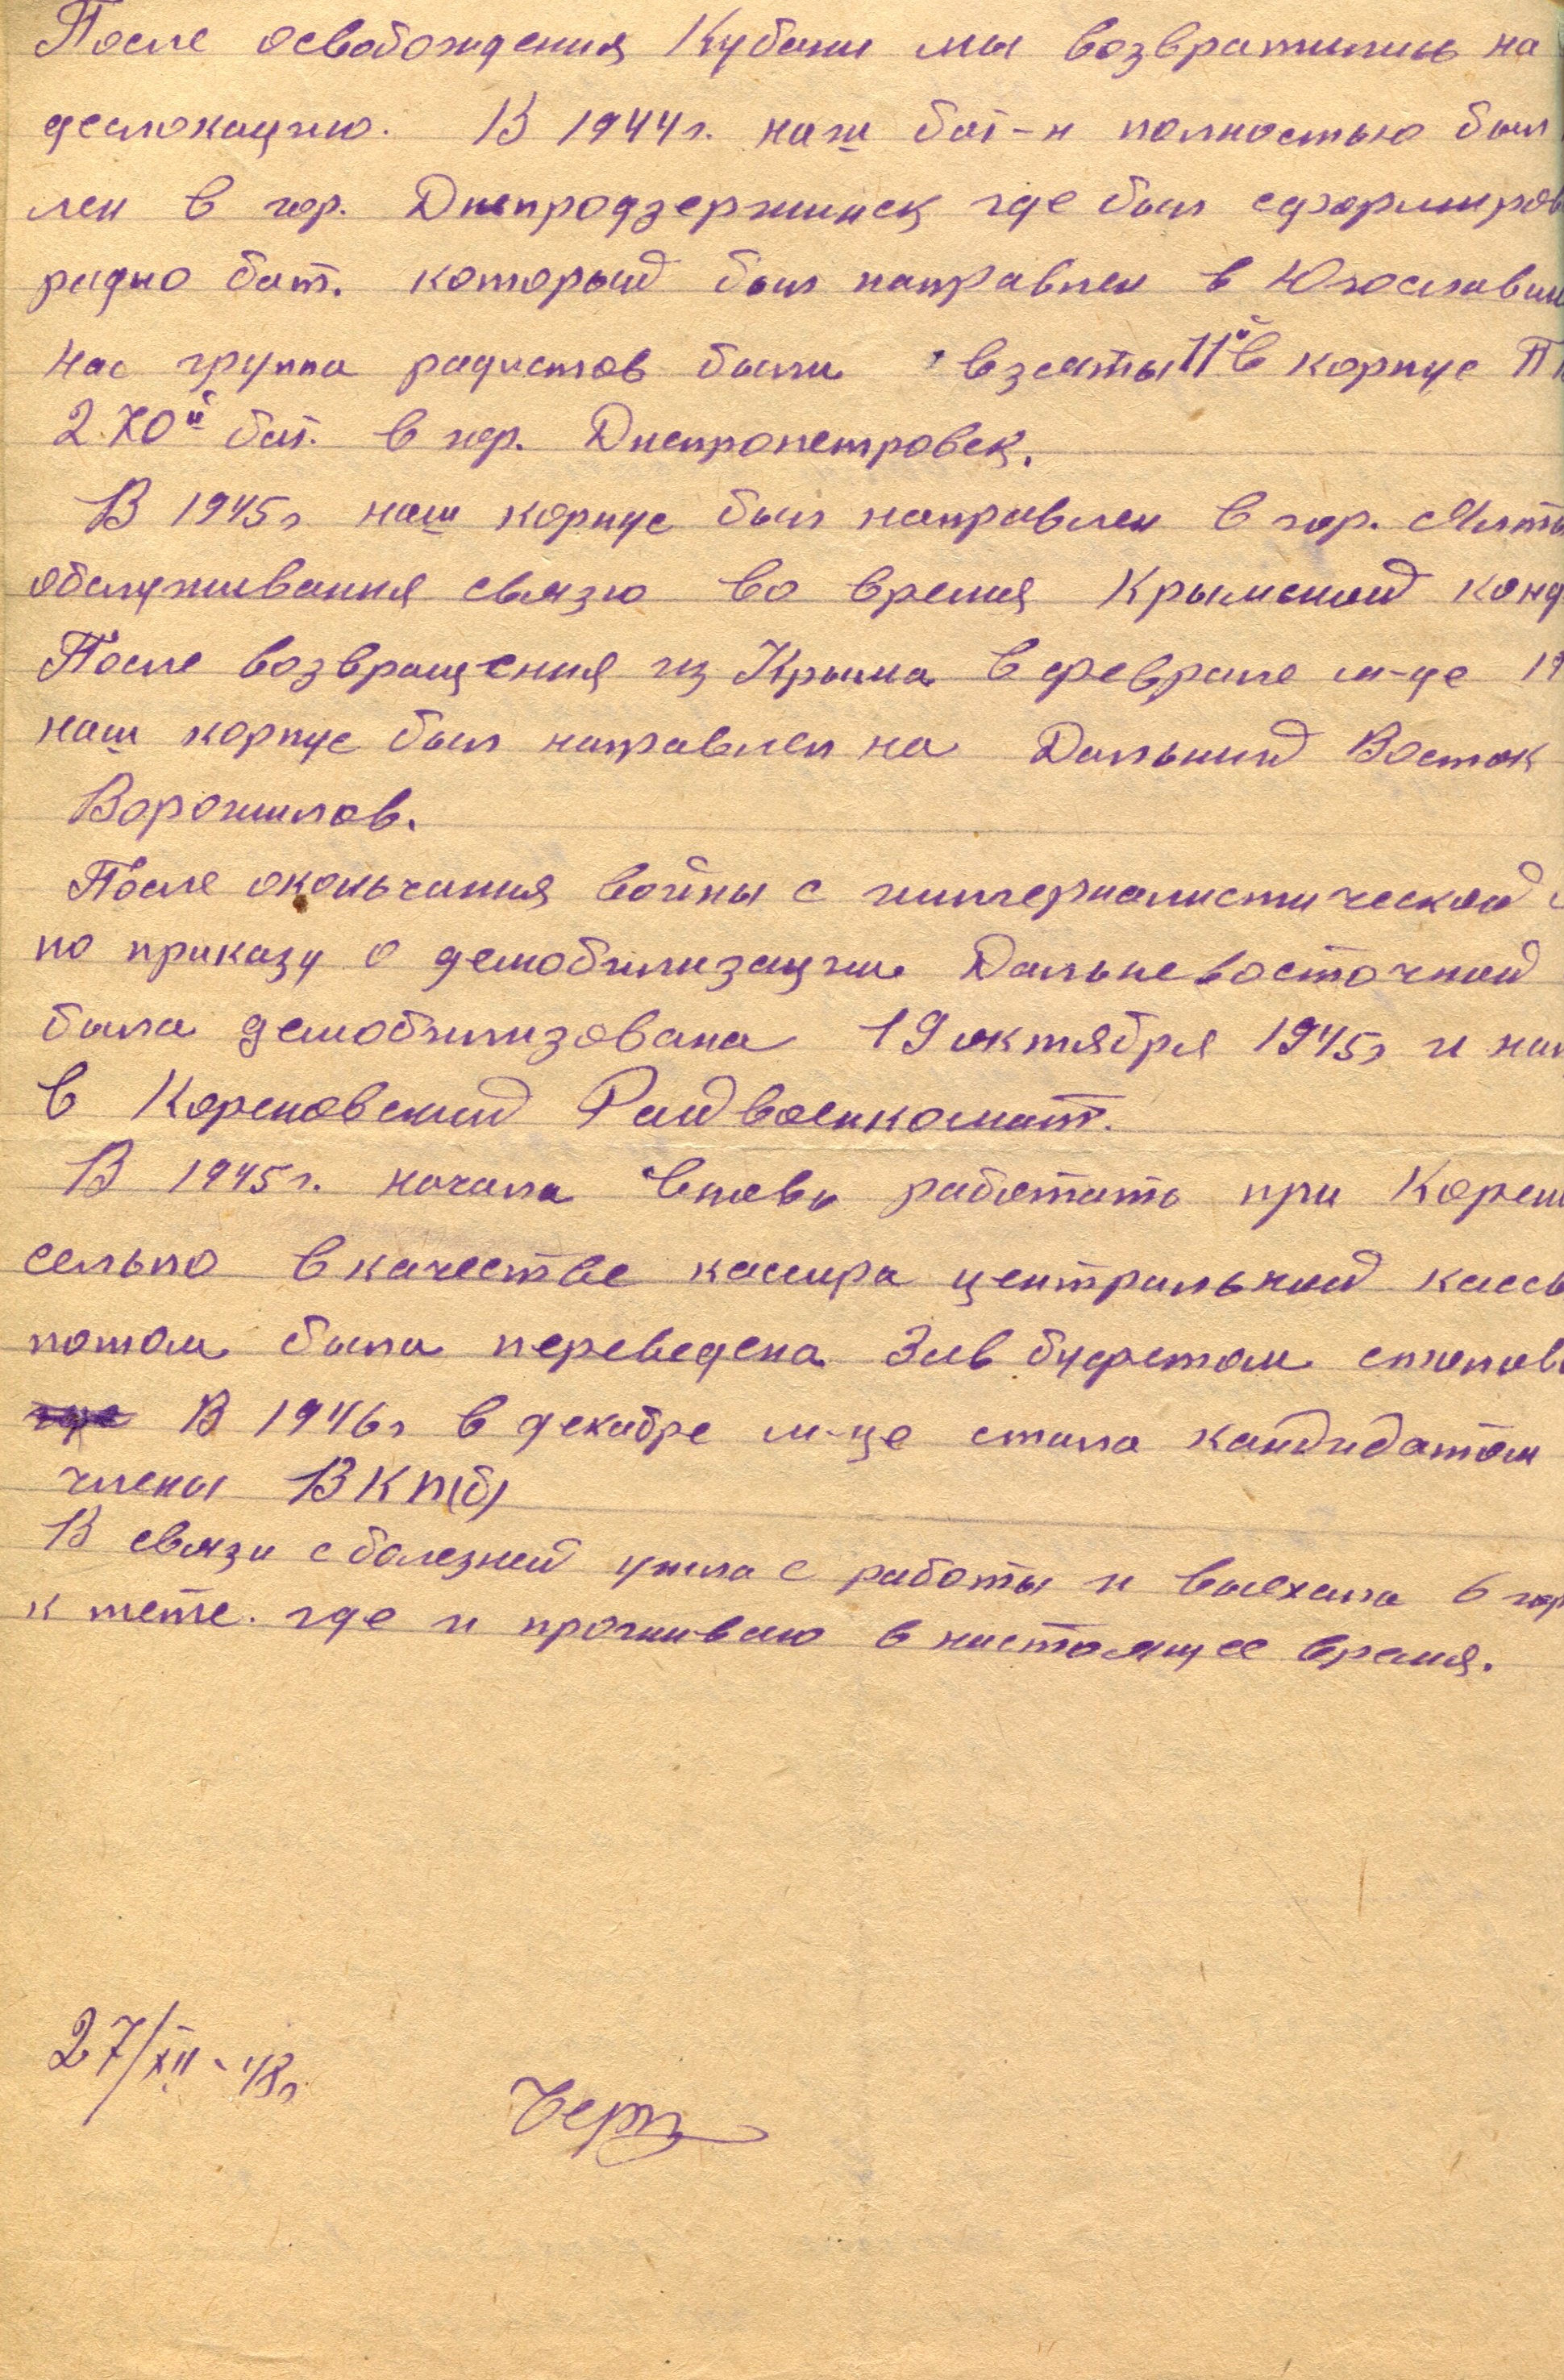 После освобождения Кубани мы возвратились на
деслокацию. В 1944г. наш бат-н полностью был
лен в гор. Днепродзержинск где был сформиров
радио бат. который был направлен в Югославии
нас группа радистов были взяты 11й в корпус П
270й бат. в гор. Днепропетровск.
В 1945г наш корпус был направлен в гор. Ялты
обслуживания связю во время Крымской конф
После возвращения из Крыма в феврале м-це 19
наш корпус был направлен на Дальний Восток
Ворошилов.
После оконьчания войны с империалистической
по приказу о демобилизации Дальневосточной
была демобилизована 19 октября 1945г и нап
в Кореновский Райвоенкомат.
В 1945г. начала вновь работать при Корен
сельпо в качестве кассира центральной кассы
потом была переведена Зав буфетом столов
где В 1946г в декабре м-це стала кандидатом
члены ВКП(б)
В связи с болезней ушла с работы и выехала в гор
к тете. где и проживаю в настоящее время.
27/XII-48г
Черн